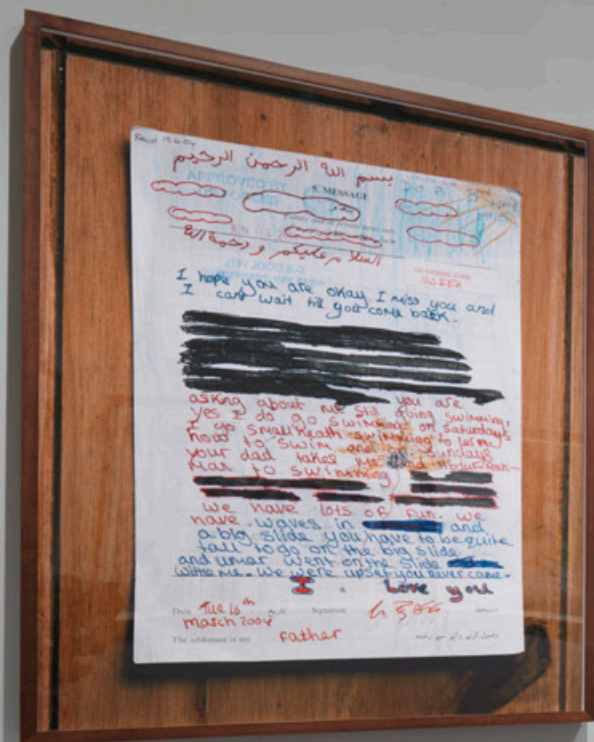 بسم الله الرحمن الرحيم
APPROVED BY
5. MESSAGE
السلام عليكم و رحمة الله
I hope you are okay I miss you and
I cant wait till you come back.
asking about me still going swimming,
you are
yes I do go swimming on Saturdays
I go Small Heath swimming to
how to swim and Sundays
your dad takes me and
to swimming
we have lots of fun. we
have waves in and
a big slide you have to be quite
tall to go on the big slide
and umar went on the slide
with me. We were upset you never came.
I Love you
Date Tue 16th Signature
March 2004
The addressee is my Father